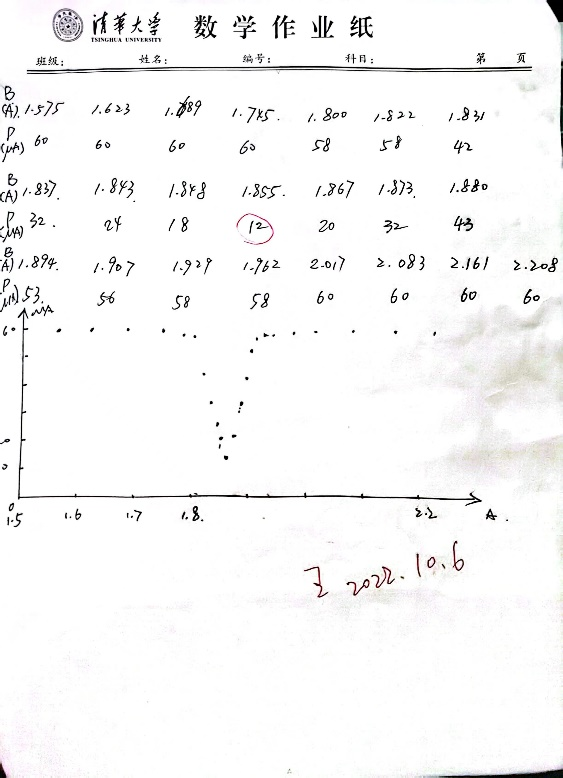 清华大学 数学作业纸
TSINGHUA UNIVERSITY
班级: 姓名: 编号: 科目: 第 页
B
(A) 1.575 1.623 1.689 1.745 1.800 1.822 1.831
P
(μA) 60 60 60 60 58 58 42
B
(A) 1.837 1.843 1.848 1.855 1.867 1.873 1.880
P
(μA) 32 24 18 12 20 32 43
B
(A) 1.894 1.907 1.929 1.962 2.017 2.083 2.161 2.208
P
(μA) 53 56 58 58 60 60 60 60
μA
60
0
1.5 1.6 1.7 1.8 2.2 A
王 2022.10.6